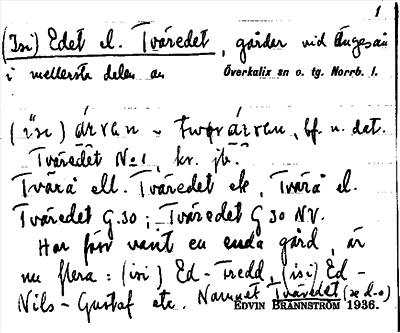 1
(Isi) Edet el. Tväredet, gårdar vid Ängesån
i mellersta delen av Överkalix sn o. tg. Norrb. l.
(ìsı) ǻrvan ~ twǫrǻrvan, bf. n. dat.
Tväredet No 1, kr. jb.
Tvärå ell. Tväredet ek, Tvärå el.
Tväredet G.30; Tväredet G 30 NV.
Har förr varit en enda gård, är
nu flera: (isi) Ed-Fredd, (isi) Ed-
Nils-Gustaf etc. Namnet Tväredet (se d-o)
EDVIN BRÄNNSTRÖM 1936.